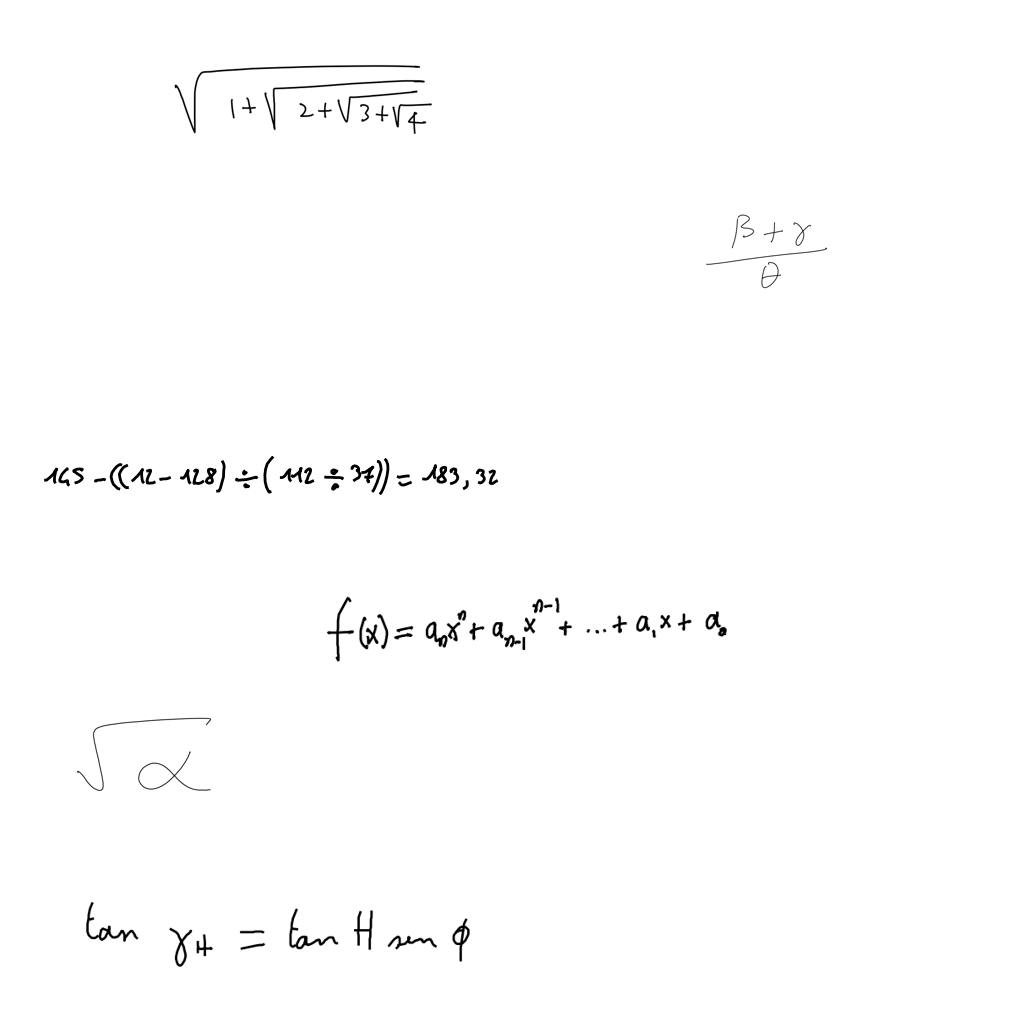 \sqrt{1+\sqrt{2+\sqrt{3+\sqrt{4}}}}
\frac{β+γ}{θ}
145-((12-128)÷(112÷37))=183,32
f(x)=a_n x^n+a_{n-1}x^{n-1}+...+a_1x+a_0
\sqrt{α}
tan γ_H = tan H sen ϕ